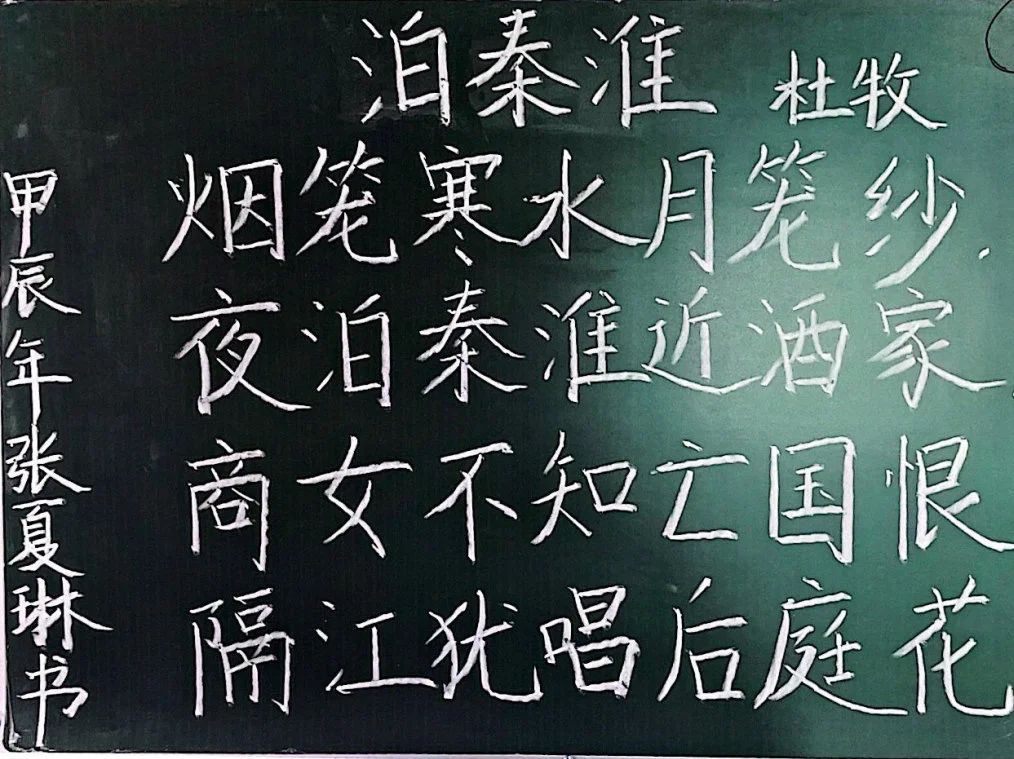 泊秦淮
杜牧
烟笼寒水月笼纱.
夜泊秦淮近酒家
商女不知亡国恨
隔江犹唱后庭花
甲辰年张夏琳书